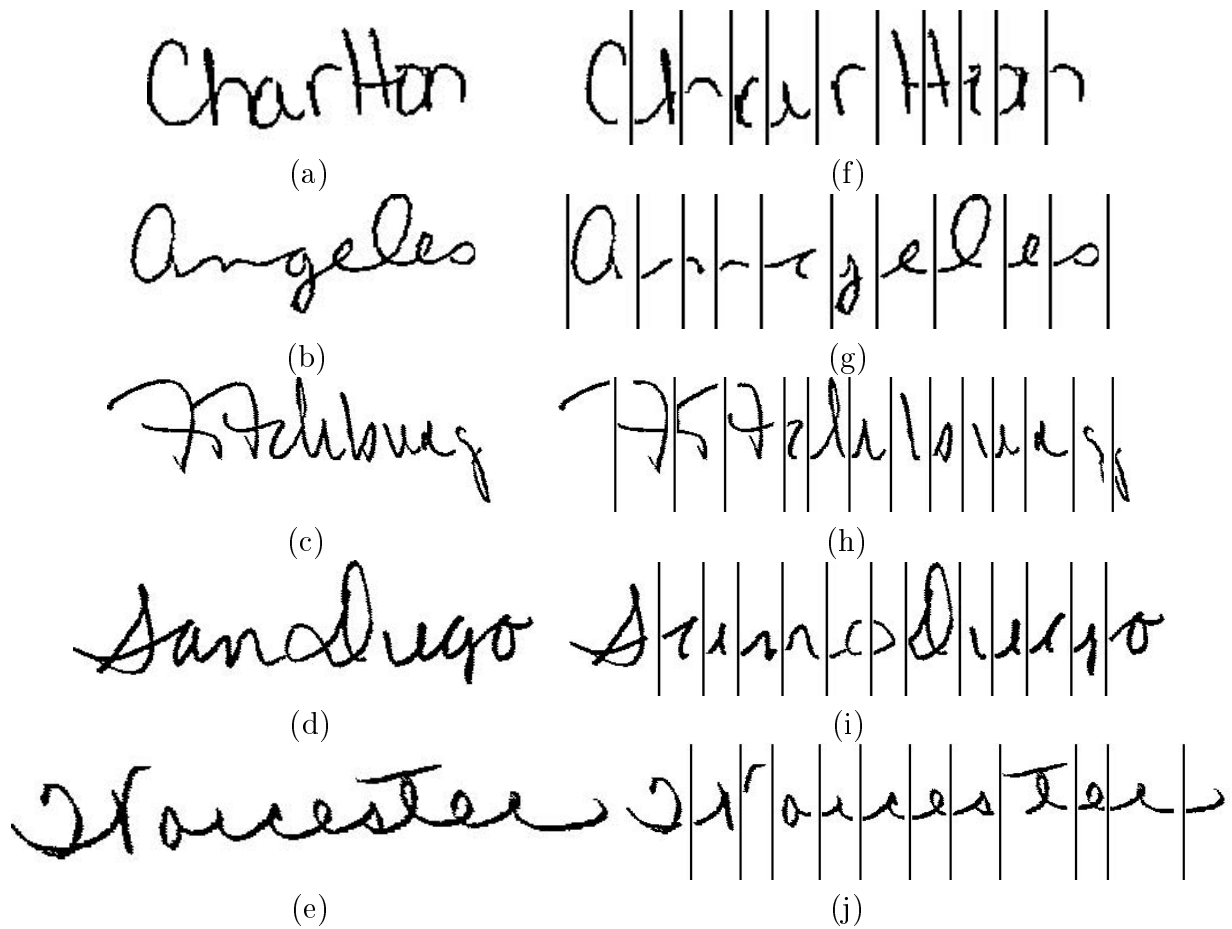 Charlton Charlton
(a) (f)
Angeles Angeles
(b) (g)
Fitchburg Fitchburg
(c) (h)
San Diego San Diego
(d) (i)
Worcester Worcester
(e) (j)